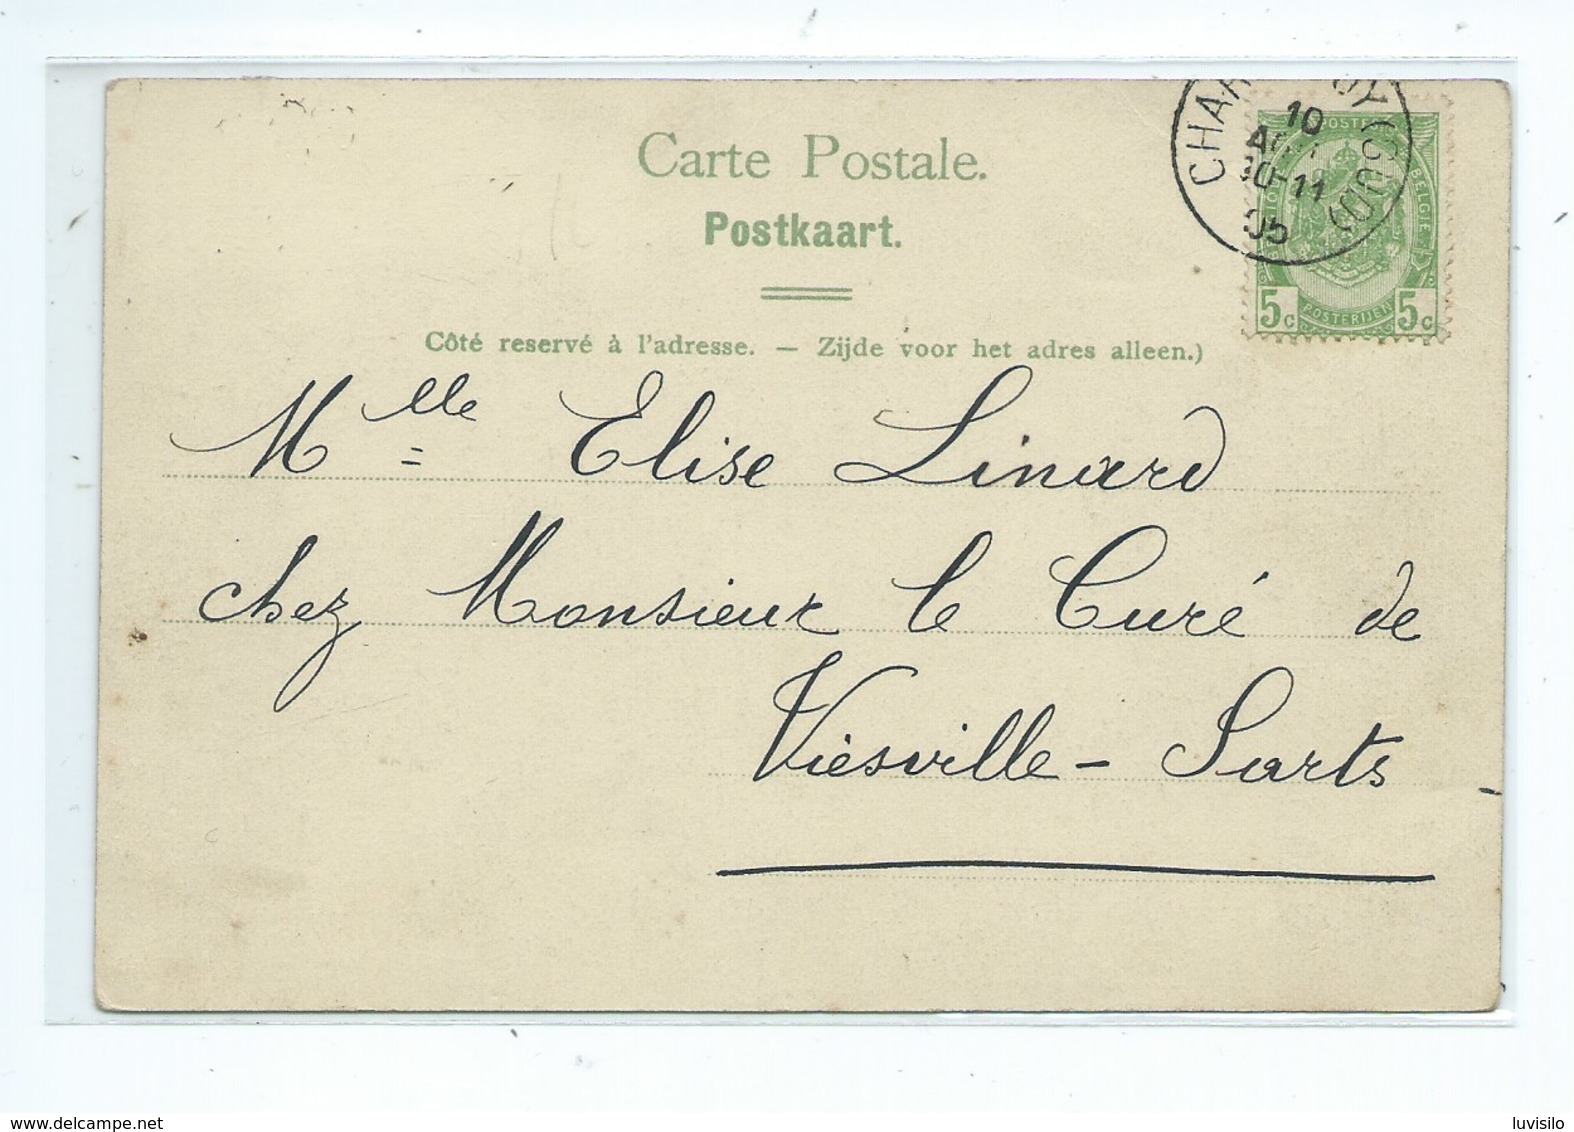 Carte Postale.
Postkaart.
Côté reservé à l'adresse. — Zijde voor het adres alleen.)
10
10-11
05
POSTES
BELGIE
5c POSTERIJEN 5c
Mlle Elise Linard
chez Monsieur le Curé de
Viesville - Sarts
www.delcampe.net
luvisilo